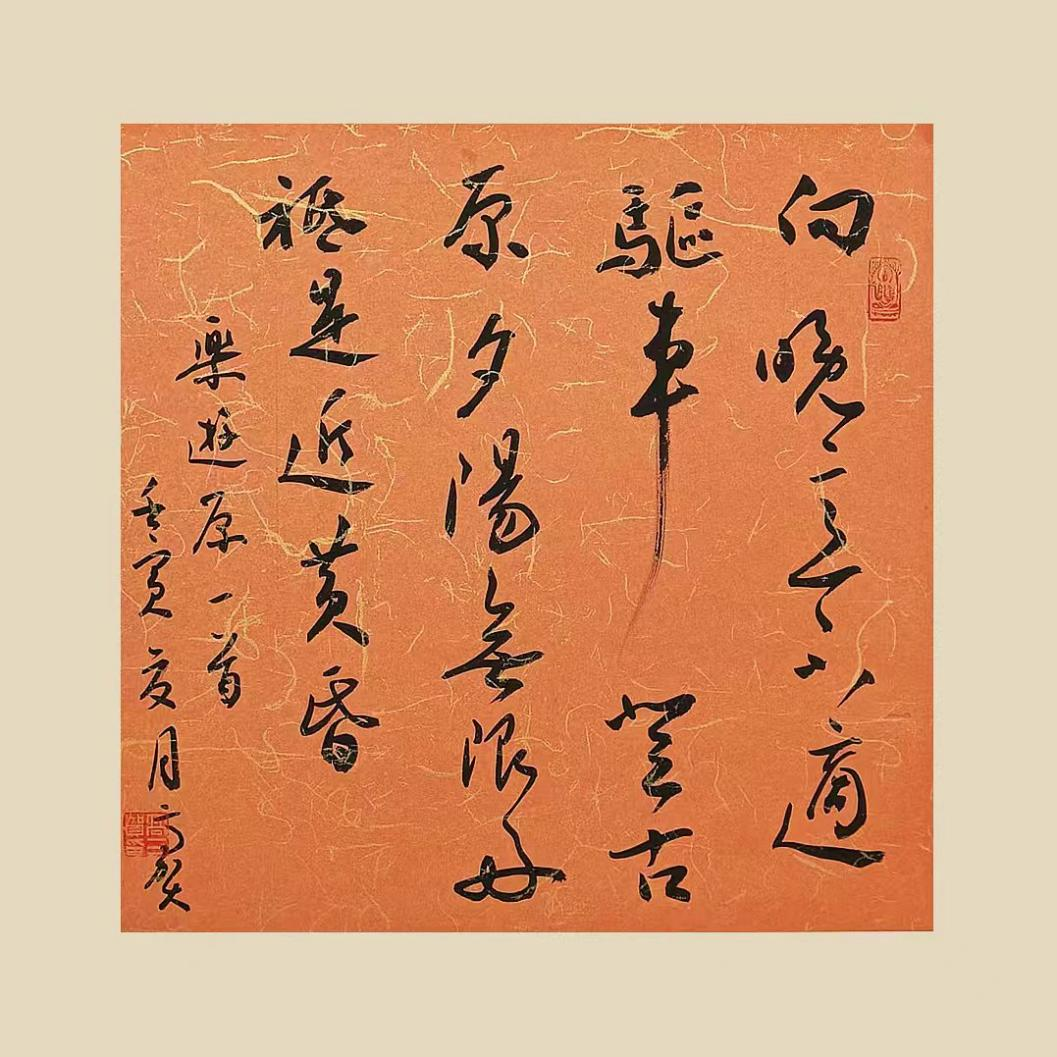 向晚意不適
驅車登古
原夕陽無限好
祗是近黄昏
樂遊原一首
壬寅夏月高賀